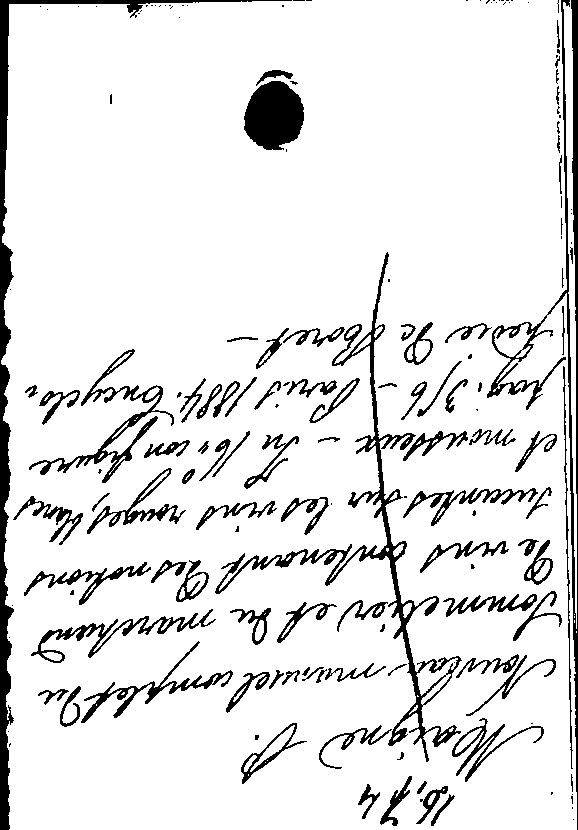 16,74
Maigne P.
Nouveau manuel complet du
Sommelier et du marchand
de vins contenant des notions
succintes sur les vins rouges, blancs
et mousseux - In 16° con figure
pag. 316 - Paris 1884. Encyclo,
pedie de Roret -